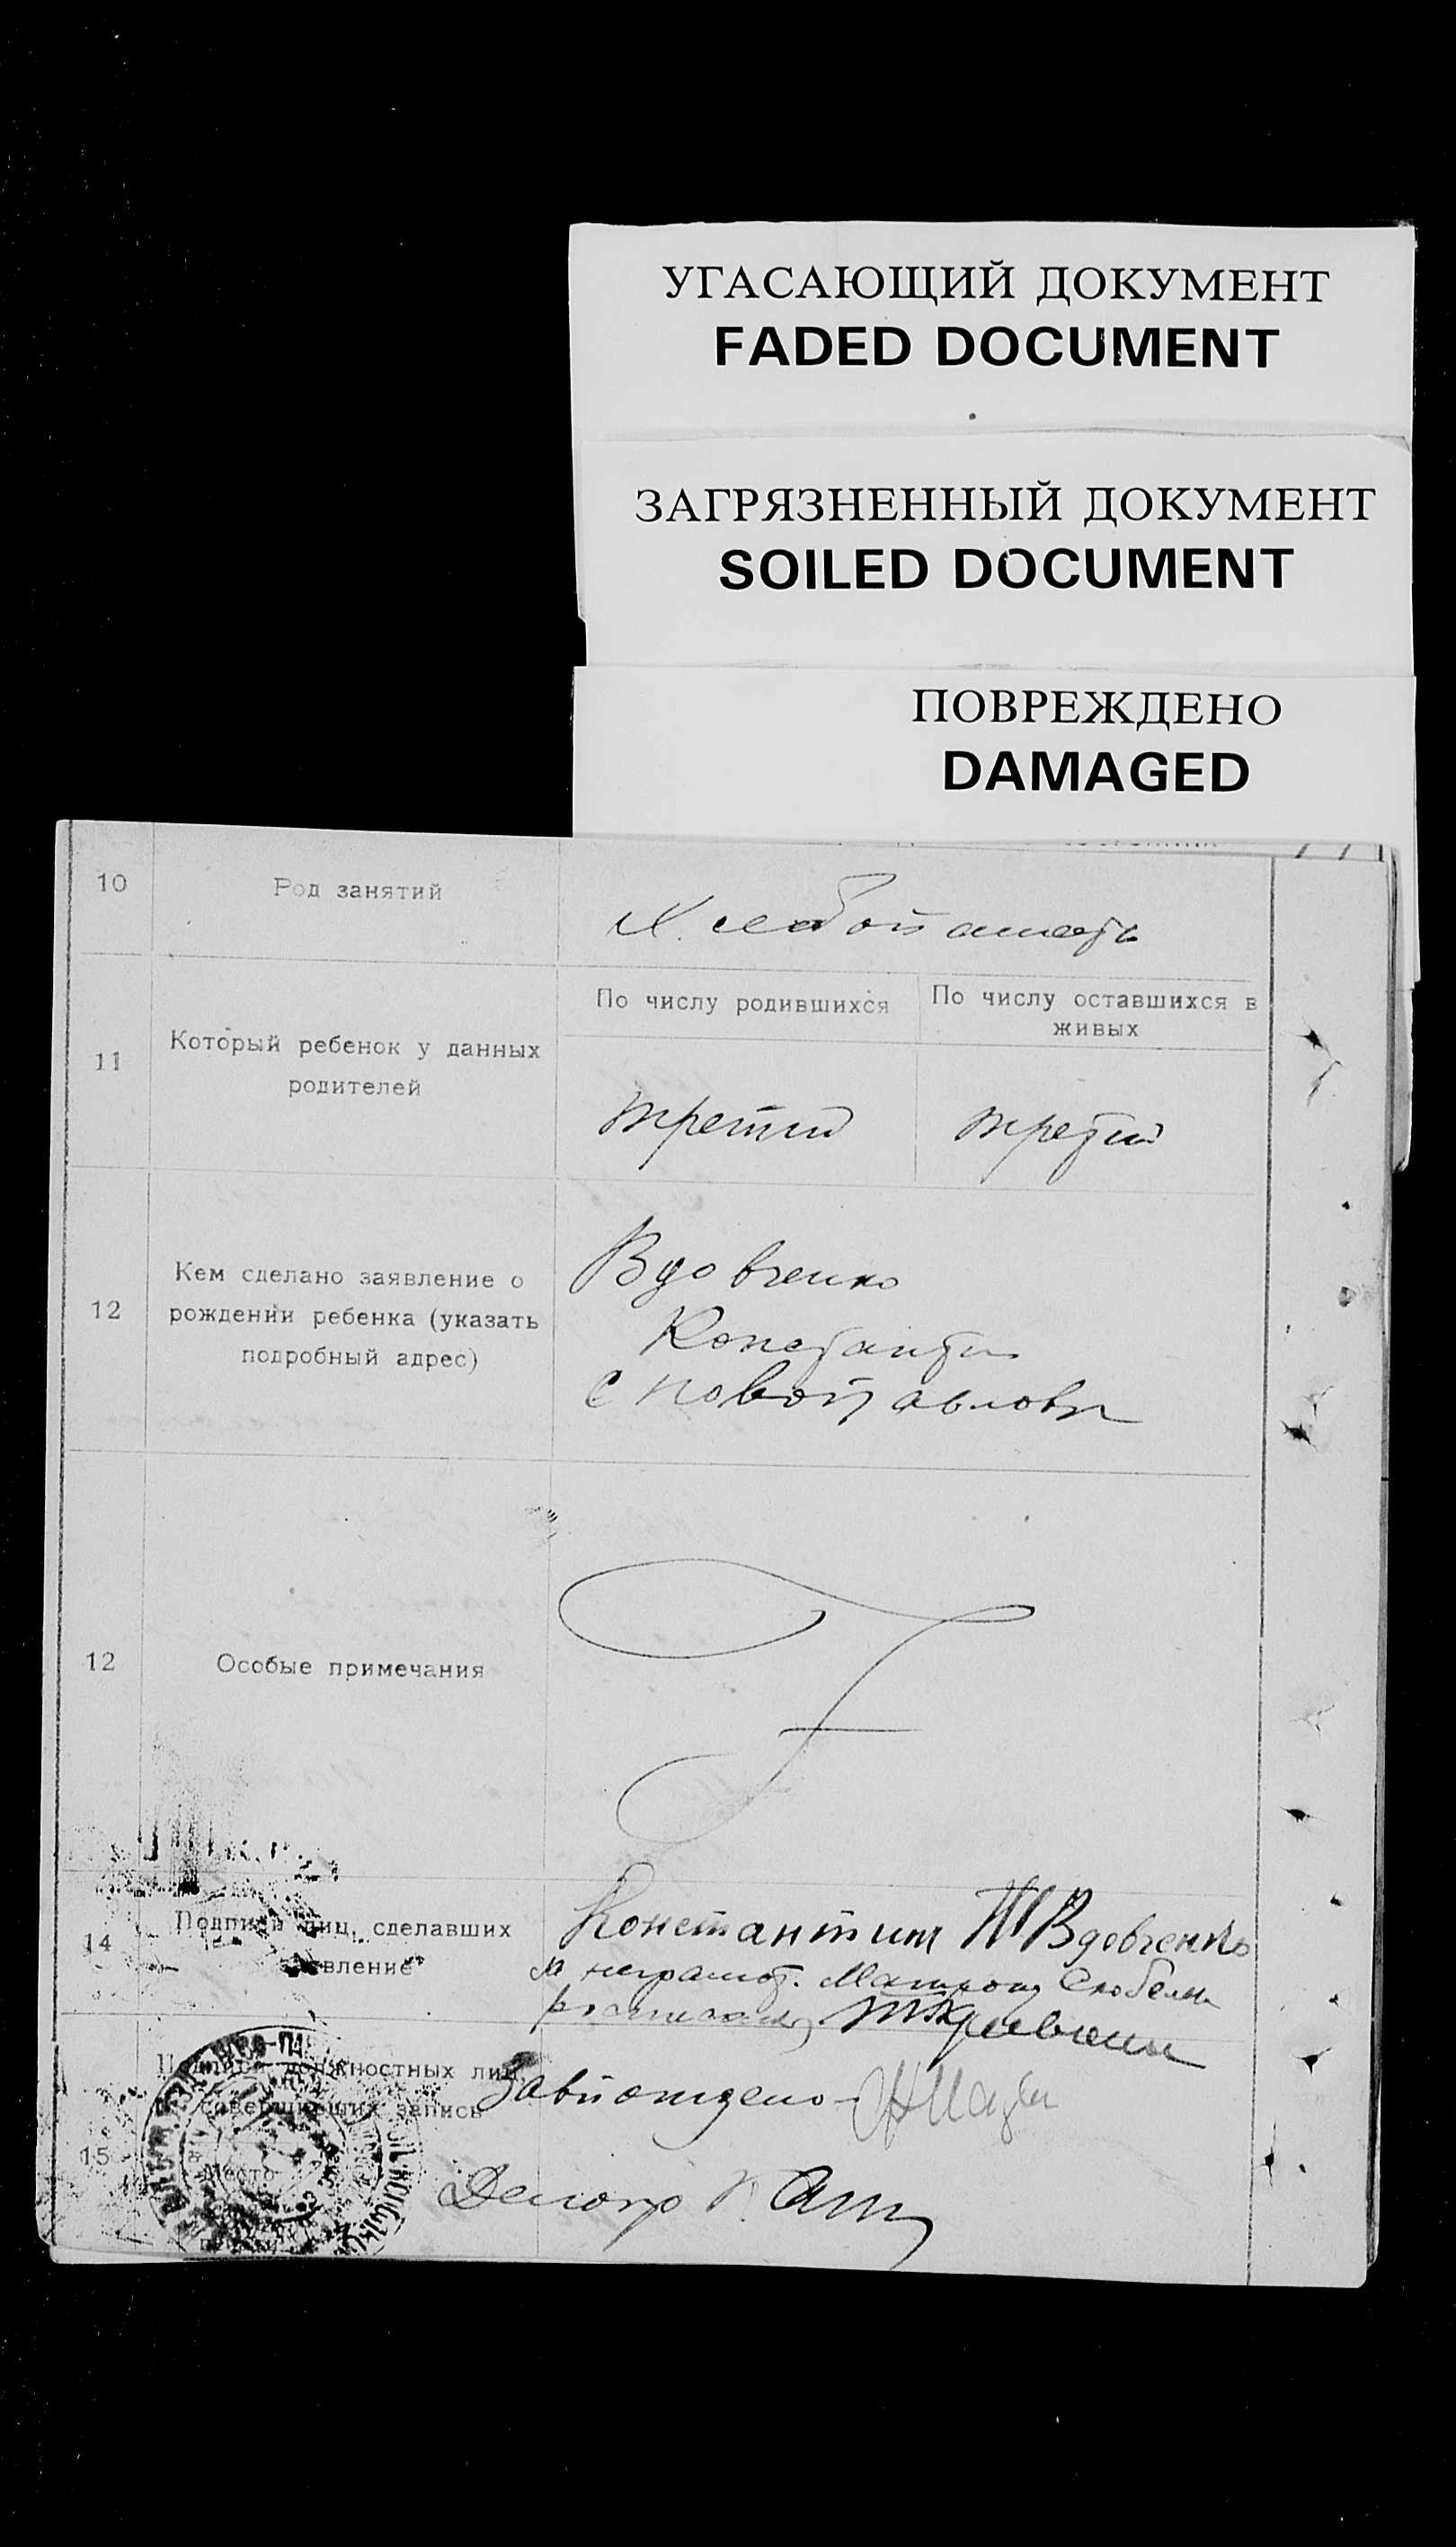 УГАСАЮЩИЙ ДОКУМЕНТ
FADED DOCUMENT
ЗАГРЯЗНЕННЫЙ ДОКУМЕНТ
SOILED DOCUMENT
ПОВРЕЖДЕНО
DAMAGED
10
Род занятий
Хлебопашец
11
Который ребенок у данных
родителей
По числу родившихся
По числу оставшихся в
живых
третий
третий
12
Кем сделано заявление о
рождении ребенка (указать
подробный адрес)
Вдовченко
Константин
с Новопавловк
12
Особые примечания
14
Подписи лиц, сделавших
заявление
Константин Вдовченко
неграмот. Матрону
15
Подписи должностных лиц,
совершивших запись
Место
Делопр